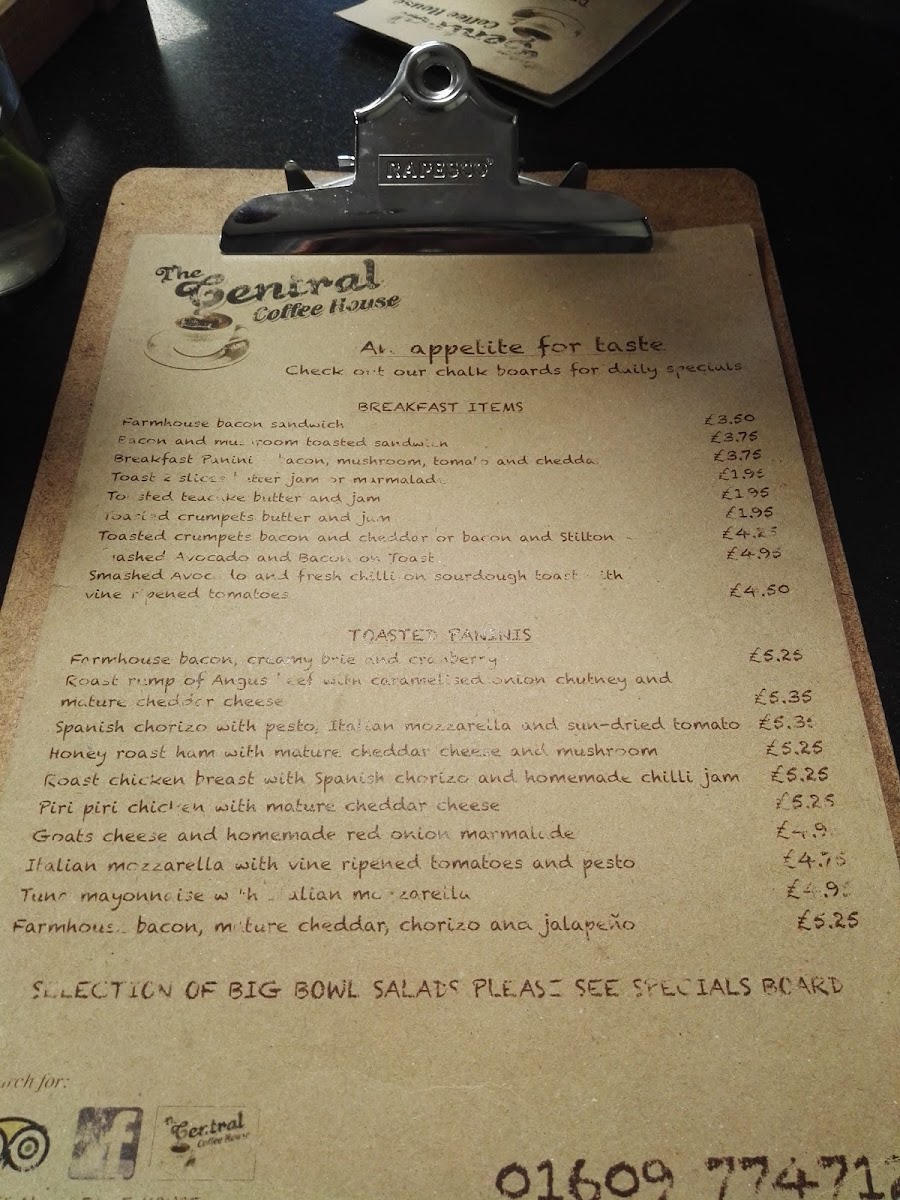 RAPESCO
The Central Coffee House
An appetite for taste
Check out our chalk boards for daily specials
BREAKFAST ITEMS
Farmhouse bacon sandwich £3.50
Bacon and mushroom toasted sandwich £3.75
Breakfast Panini bacon, mushroom, tomato and cheddar £3.75
Toast 2 slices butter jam or marmalade £1.95
Toasted teacake butter and jam £1.95
Toasted crumpets butter and jam £1.95
Toasted crumpets bacon and cheddar or bacon and Stilton £4.25
Smashed Avocado and Bacon on Toast £4.95
Smashed Avocado and fresh chilli on sourdough toast with
vine ripened tomatoes £4.50
TOASTED PANINIS
Farmhouse bacon, creamy brie and cranberry £5.25
Roast rump of Angus beef with caramelised onion chutney and
mature cheddar cheese £5.35
Spanish chorizo with pesto, Italian mozzarella and sun-dried tomato £5.35
Honey roast ham with mature cheddar cheese and mushroom £5.25
Roast chicken breast with Spanish chorizo and homemade chilli jam £5.25
Piri piri chicken with mature cheddar cheese £5.25
Goats cheese and homemade red onion marmalade £4.9
Italian mozzarella with vine ripened tomatoes and pesto £4.75
Tuna mayonnaise with Italian mozzarella £4.9
Farmhouse bacon, mature cheddar, chorizo and jalapeño £5.25
SELECTION OF BIG BOWL SALADS PLEASE SEE SPECIALS BOARD
arch for:
Central Coffee House
01609 774712